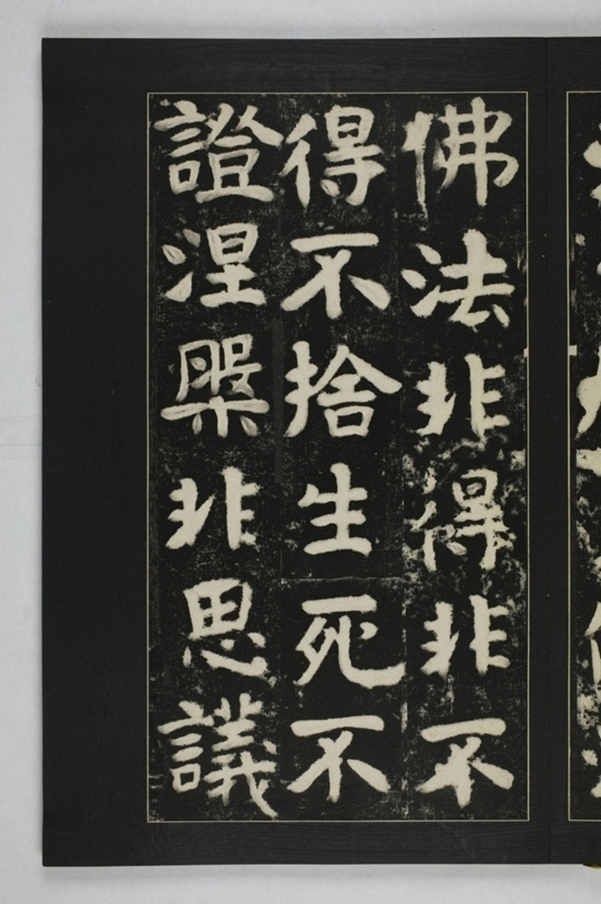 佛法非得非不
得不捨生死不
證涅槃非思議